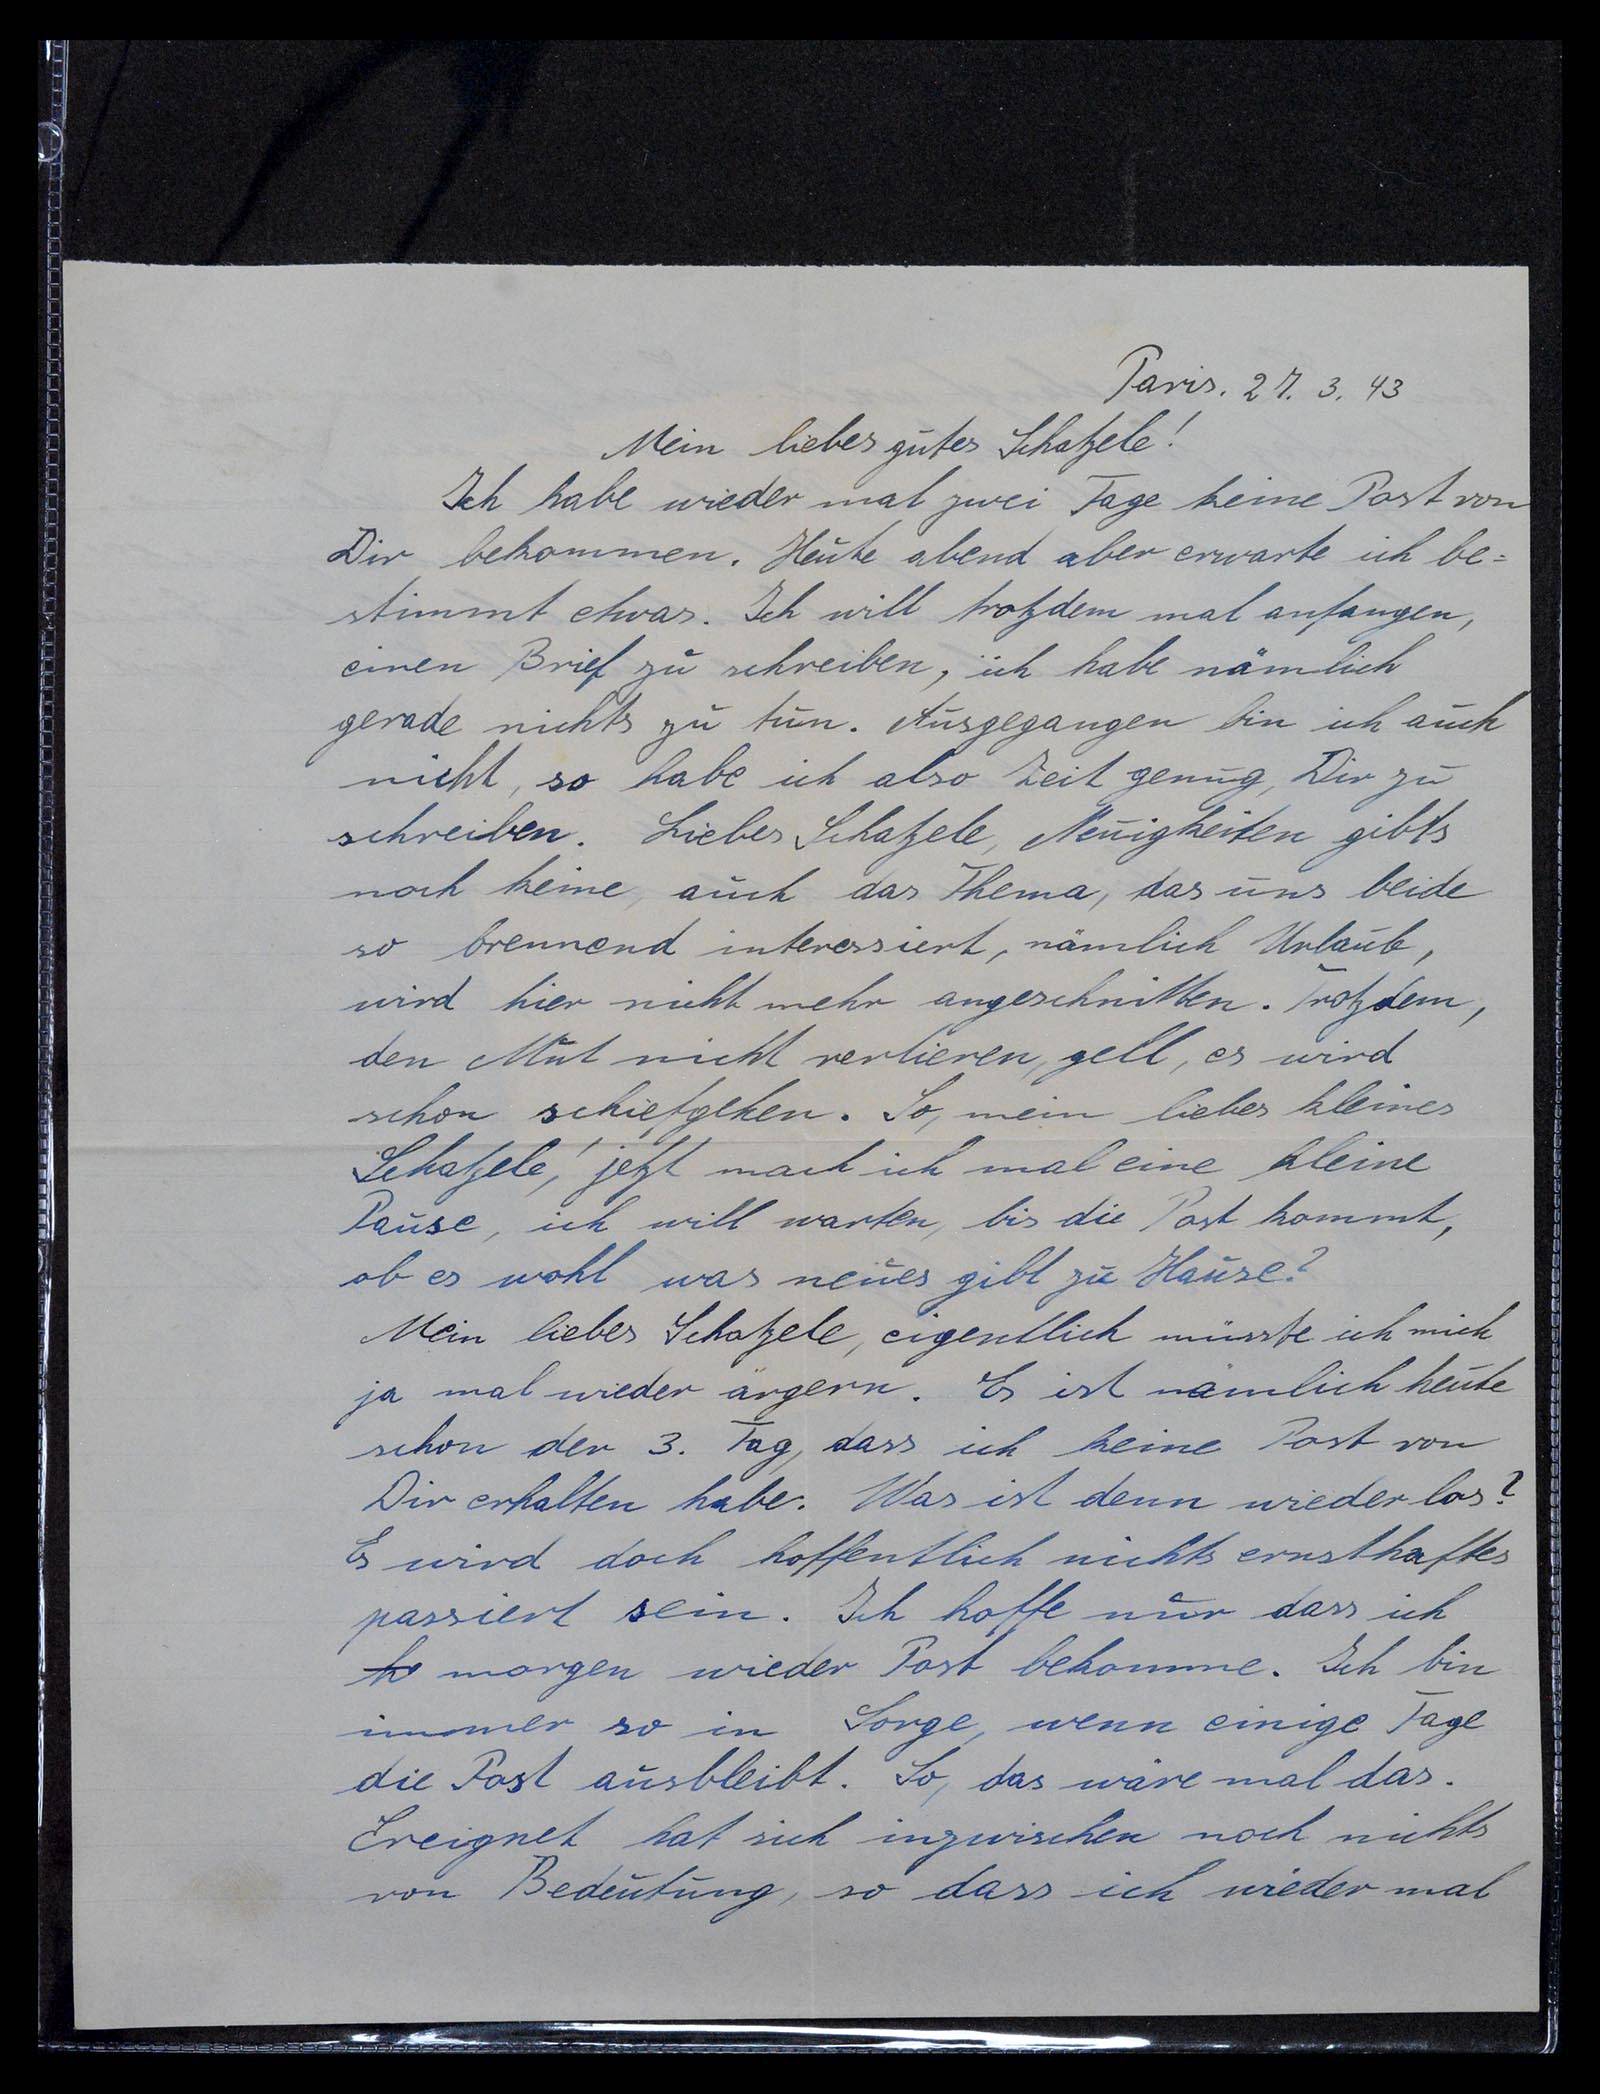 Paris. 27. 3. 43
Mein liebes gutes Schatzele!
Ich habe wieder mal zwei Tage keine Post von
Dir bekommen. Heute abend aber erwarte ich be=
stimmt etwas. Ich will trotzdem mal anfangen,
einen Brief zu schreiben, ich habe nämlich
gerade nichts zu tun. Ausgegangen bin ich auch
nicht, so habe ich also Zeit genug, Dir zu
schreiben. Liebes Schatzele, Neuigkeiten gibts
noch keine, auch das Thema, das uns beide
so brennend interessiert, nämlich Urlaub,
wird hier nicht mehr angeschnitten. Trotzdem,
den Mut nicht verlieren, gell, es wird
schon schiefgehen. So, mein liebes kleines
Schatzele, jetzt mach ich mal eine kleine
Pause, ich will warten, bis die Post kommt,
ob es wohl was neues gibt zu Hause?
Mein liebes Schatzele, eigentlich müsste ich mich
ja mal wieder ärgern. Es ist nämlich heute
schon der 3. Tag, dass ich keine Post von
Dir erhalten habe. Was ist denn wieder los?
Es wird doch hoffentlich nichts ernsthaftes
passiert sein. Ich hoffe nur dass ich
morgen wieder Post bekomme. Ich bin
immer so in Sorge, wenn einige Tage
die Post ausbleibt. So, das wäre mal das.
Ereignet hat sich inzwischen noch nichts
von Bedeutung, so dass ich wieder mal